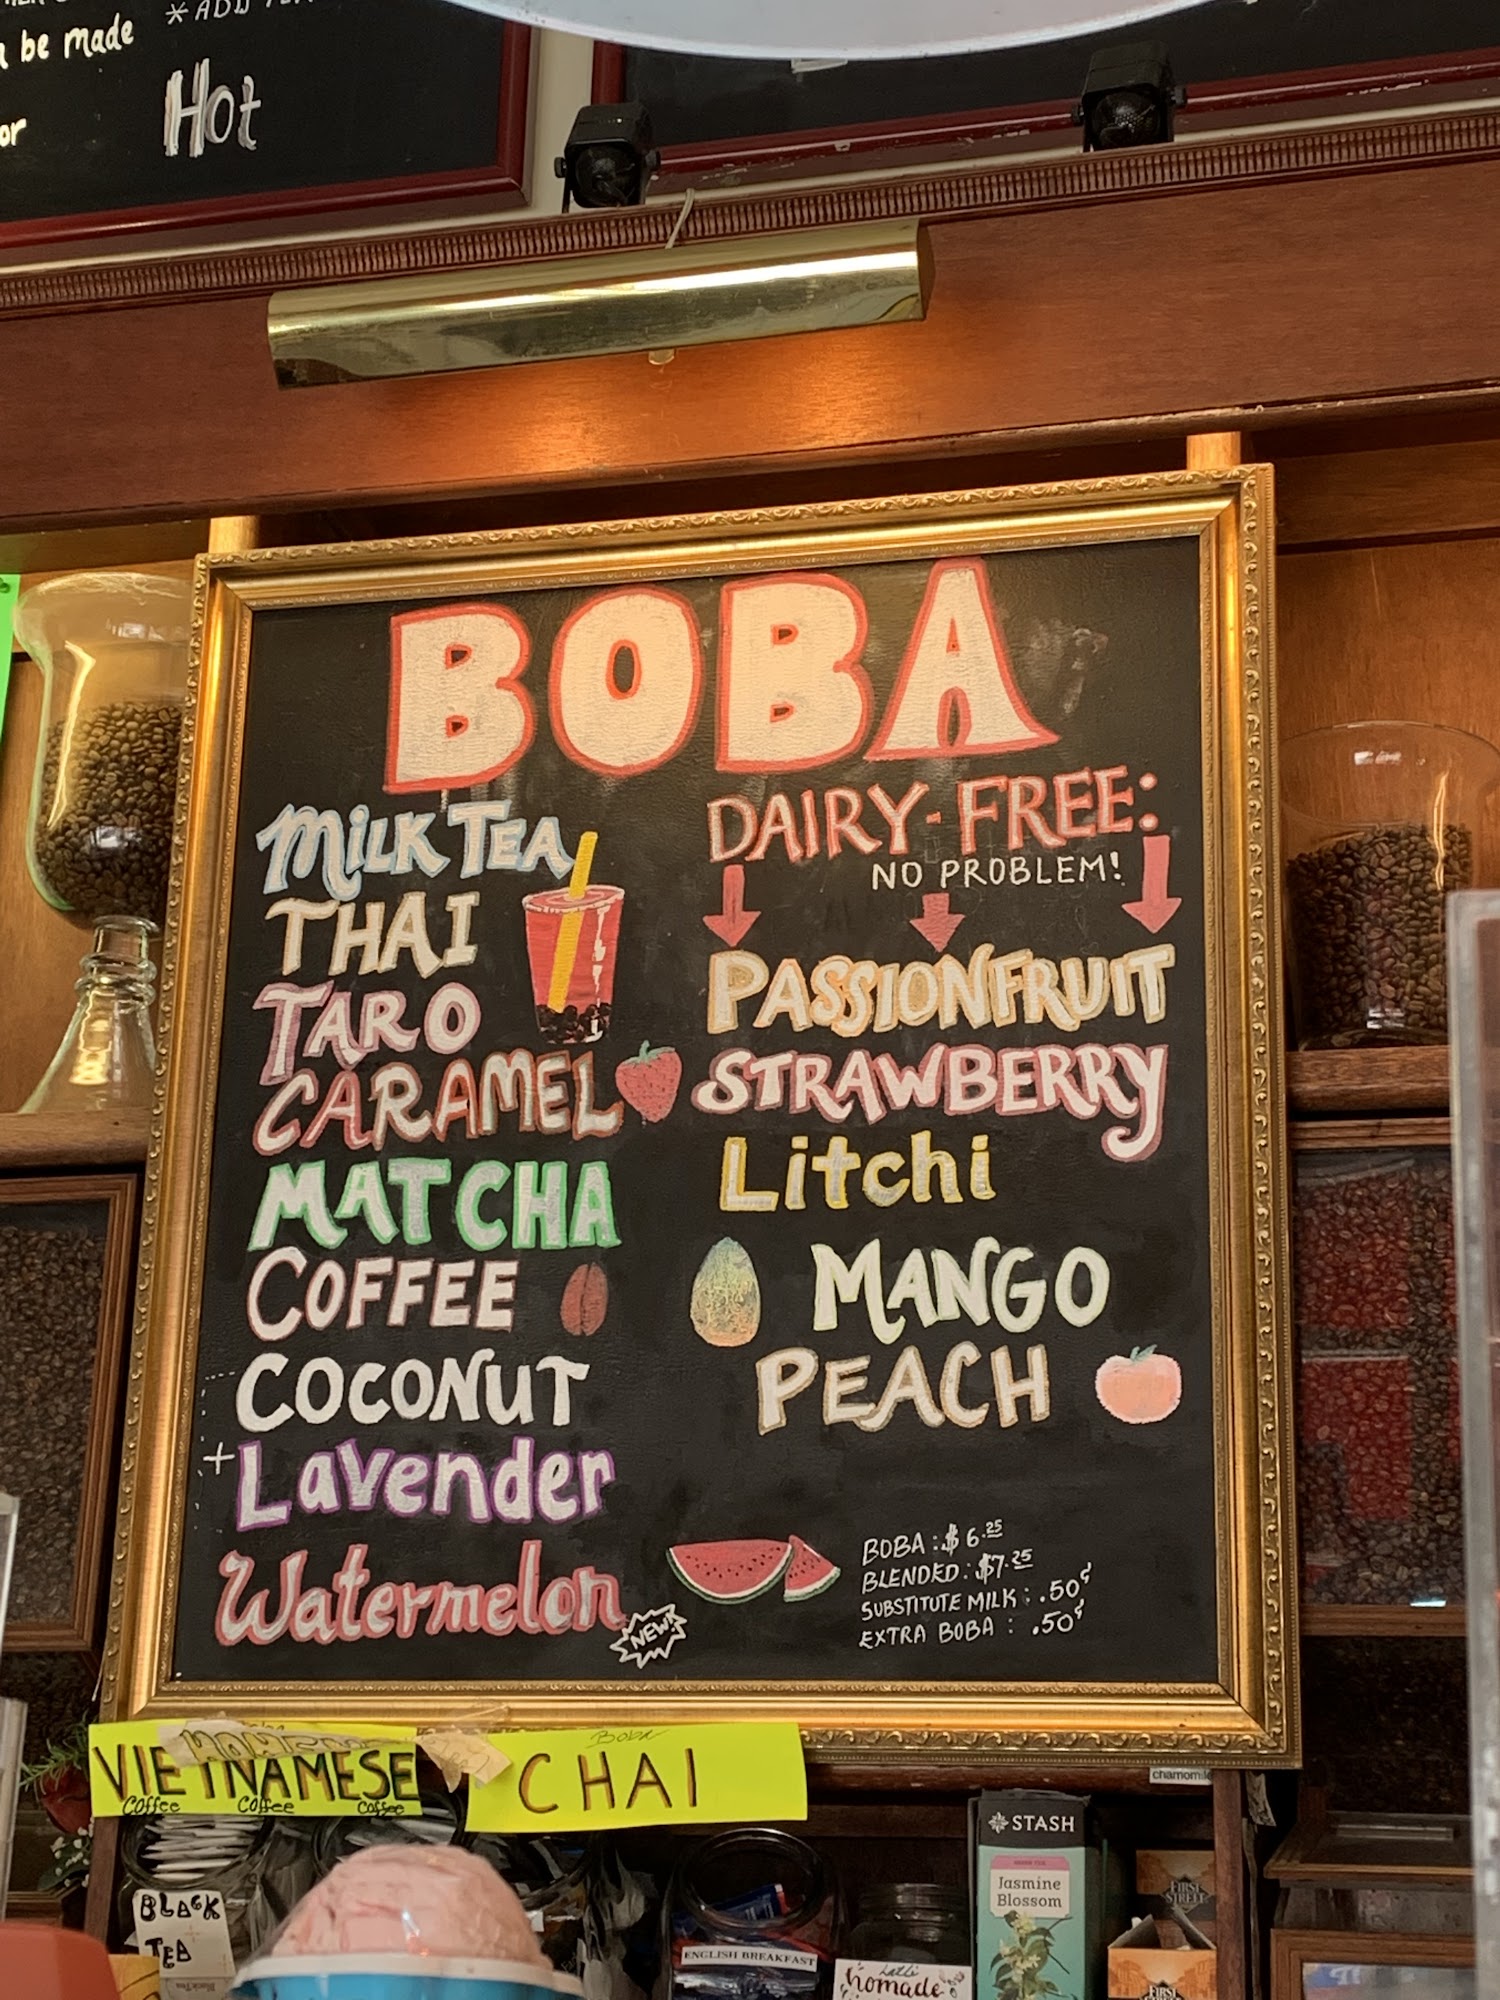 be made
or
Hot
BOBA
MILK TEA
THAI
TARO
CARAMEL
MATCHA
COFFEE
COCONUT
+Lavender
Watermelon
NEW!
DAIRY-FREE:
NO PROBLEM!
PASSIONFRUIT
STRAWBERRY
Litchi
MANGO
PEACH
BOBA: $6.25
BLENDED: $7.25
SUBSTITUTE MILK: .50¢
EXTRA BOBA: .50¢
VIETNAMESE
Coffee Coffee Coffee
Boba
CHAI
chamomile
BLACK
TEA
ENGLISH BREAKFAST
homade
STASH
Jasmine
Blossom
FIRST
STREET
FIRST